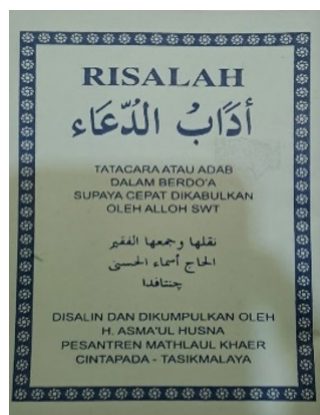 RISALAH
أدَابُ الدُّعَاء
TATACARA ATAU ADAB
DALAM BERDO'A
SUPAYA CEPAT DIKABULKAN
OLEH ALLOH SWT
نقلها وجمعها الفقير
الحاج أسماء الحسنى
چنتافدا
DISALIN DAN DIKUMPULKAN OLEH
H. ASMA'UL HUSNA
PESANTREN MATHLAUL KHAER
CINTAPADA - TASIKMALAYA